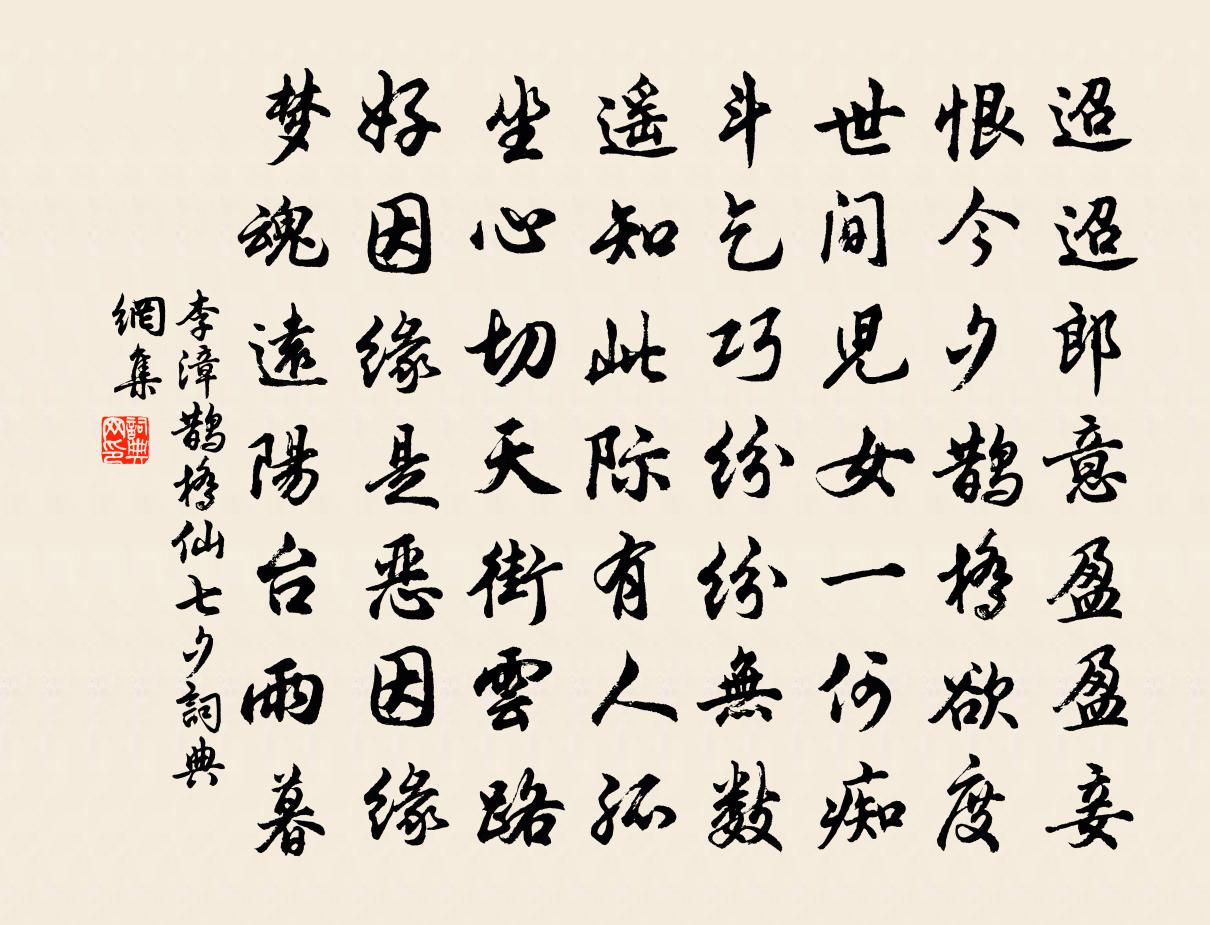 迢迢郎意盈盈妾
恨今夕鹊橋欲度
世间児女一何痴
斗乞巧纷纷無数
遥知此际有人孤
坐心切天街雲路
好因缘是恶因缘
梦魂遠陽台雨暮
李漳鹊橋仙七夕詞典
網集
詞典
网印